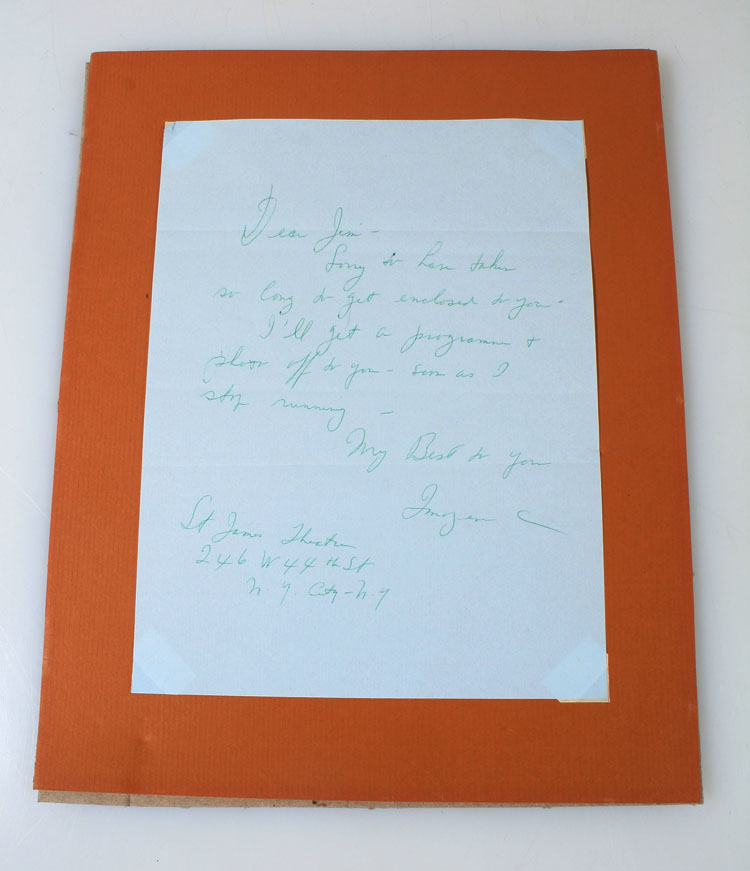 Dear Jim -
Sorry to have taken
so long to get enclosed to you.
I'll get a programme +
photo off to you - soon as I
stop running -
My Best to you
Imogene C
St James Theatre
246 W 44th St
N.Y. City - N.Y